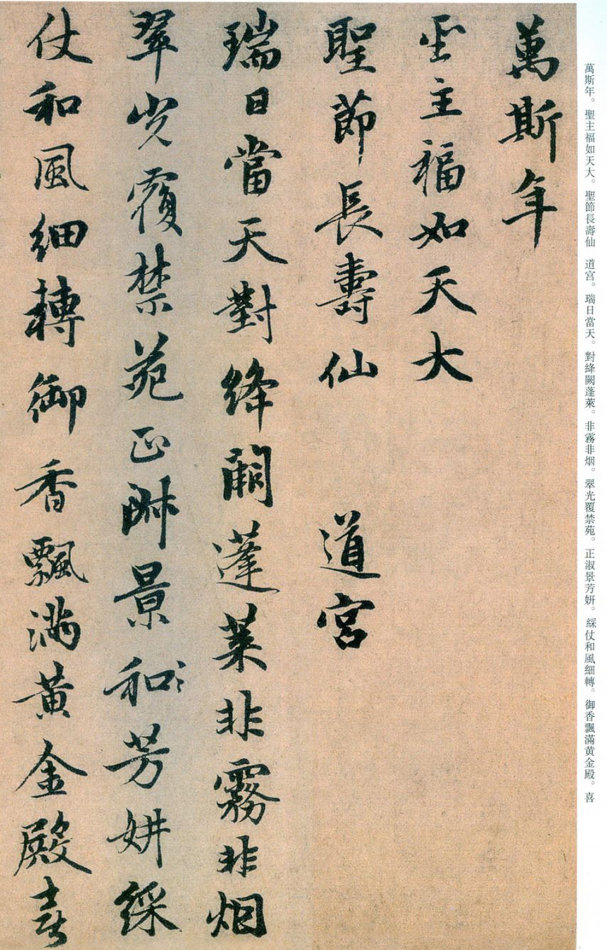 萬斯年。聖主福如天大。聖節長壽仙　道宮。瑞日當天。對絳闕蓬萊。非霧非烟。翠光覆禁苑。正淑景芳妍。綵仗和風細轉。御香飄滿黄金殿。喜
萬斯年
聖主福如天大
聖節長壽仙　道宮
瑞日當天對絳闕蓬萊非霧非烟
翠光覆禁苑正淑景和芳妍綵
仗和風細轉御香飄滿黄金殿喜